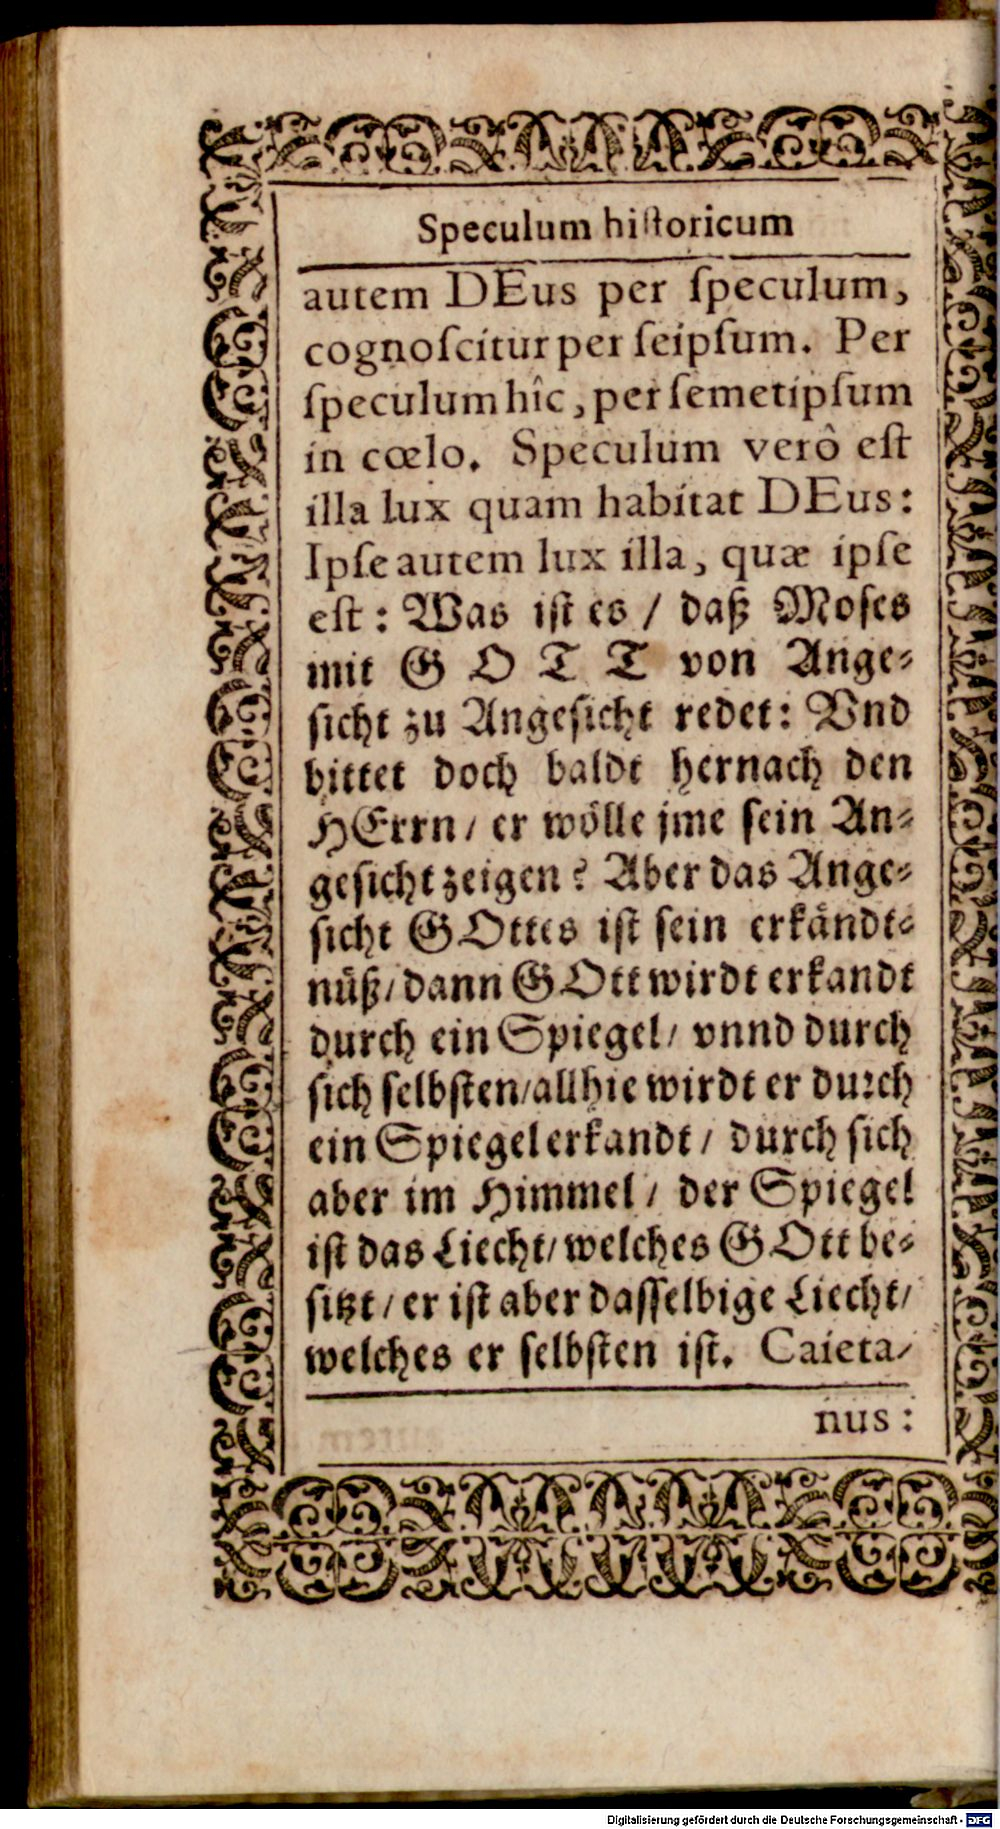 Speculum historicum
autem DEus per ſpeculum,
cognoſcitur per ſeipſum. Per
ſpeculum hîc, per ſemetipſum
in cœlo. Speculum verô eſt
illa lux quam habitat DEus:
Ipſe autem lux illa, quæ ipſe
eſt: Was iſt es / daß Moſes
mit G O T T von Ange-
ſicht zu Angeſicht redet: Vnd
bittet doch baldt hernach den
HErrn / er wölle jme ſein An-
geſicht zeigen? Aber das Ange-
ſicht GOttes iſt ſein erkändt-
nüß / dann GOtt wirdt erkandt
durch ein Spiegel / vnnd durch
ſich ſelbſten / allhie wirdt er durch
ein Spiegel erkandt / durch ſich
aber im Himmel / der Spiegel
iſt das Liecht / welches GOtt be-
ſitzt / er iſt aber daſſelbige Liecht /
welches er ſelbſten iſt. Caieta-
nus:
Digitalisierung gefördert durch die Deutsche Forschungsgemeinschaft - DFG